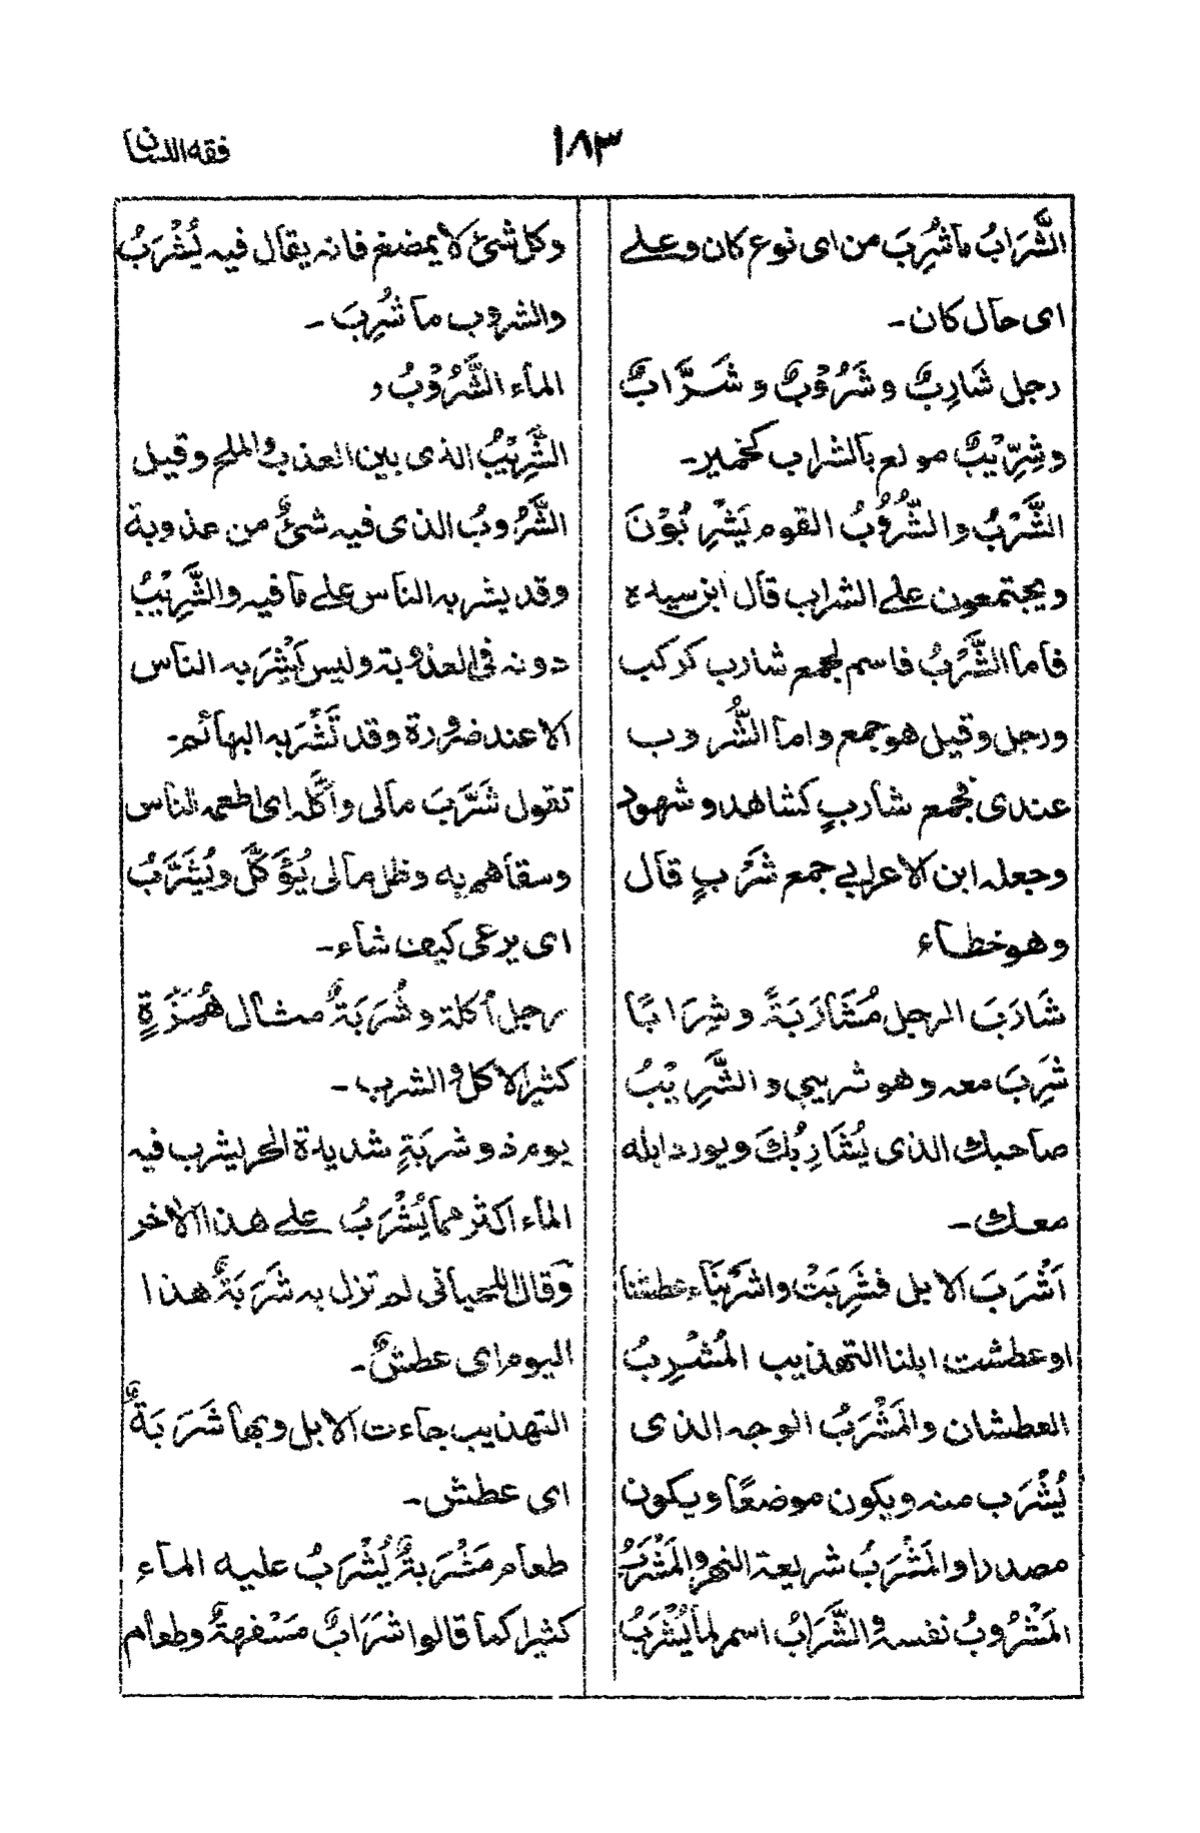 فقه اللسان
١٨٣
الشَّرَابُ مَا شُرِبَ من ای نوع کان وعلے
ای حال کان۔
رجل شَارِبٌ و شَرُوْبٌ و شَرَّابٌ
وشِرِّیْبٌ مولع بالشراب کخمیر۔
الشَّرْبُ والشُّرُوْبُ القوم یَشْرِبُوْنَ
ویجتمعون علے الشراب قال ابن سیده
فاما الشَّرْبُ فاسم لجمع شارب کرکب
ورجل وقیل هو جمع واما الشُّروب
عندی فجمع شاربٍ کشاهد و شهود
وجعله ابن الاعرابی جمع شَرْبٍ قال
وهو خطاء
شَارَبَ الرجل مُشَارَبَةً و شِرَابًا
شَرِبَ معه وهو شریبی و الشَّرِیْبُ
صاحبك الذی یُشَارِبُكَ ویورد ابله
معك۔
اَشْرَبَ الابل فشَرِبَتْ واشرَبْنَا عطشنا
او عطشت ابلنا التهذیب المُشْرِبُ
العطشان والمَشْرَبُ الوجه الذی
یُشْرَب منه ویکون موضعًا ویکون
مصدرا والمَشْرَبُ شریعة النهر والمَشْرَبُ
المَشْرُوبُ نفسه والشَّرَابُ اسم لما یُشْرَبُ
وکل شئ لا یمضغ فانه یقال فیه یُشْرَبُ
والشروب ما شُرِبَ۔
الماء الشَّرُوْبُ و
الشَّرِیْبُ الذی بین العذب والملح وقیل
الشَّرُوبُ الذی فیه شئٌ من عذوبة
وقد یشربه الناس علے ما فیه والشَّرِیْبُ
دونه فی العذوبة ولیس یَشْرَبه الناس
الا عند ضرورة وقد تَشْرَبه البهائم۔
تقول شَرَّبَ مالی واکَّله ای اطعمه الناس
وسقاهم به وظل مالی یُؤَکَّلُ ویُشَرَّبُ
ای یرعی کیف شاء۔
رجل أکلة و شُرَبَةٌ مثال هُمَزَةٍ
کثیر الاکل والشرب۔
یوم ذو شربَةٍ شدیدة الحر یشرب فیه
الماء اکثر مما یُشْرَبُ علے هذا الاخر
وقال اللحیانی لم تزل به شَرَبَةٌ هذا
الیوم ای عطشٌ۔
التهذیب جاءت الابل وبها شَرَبَةٌ
ای عطش۔
طعام مَشْرَبةٌ یُشْرَبُ علیه الماء
کثیرا کما قالوا شَرَابٌ مَسْفهةٌ وطعام